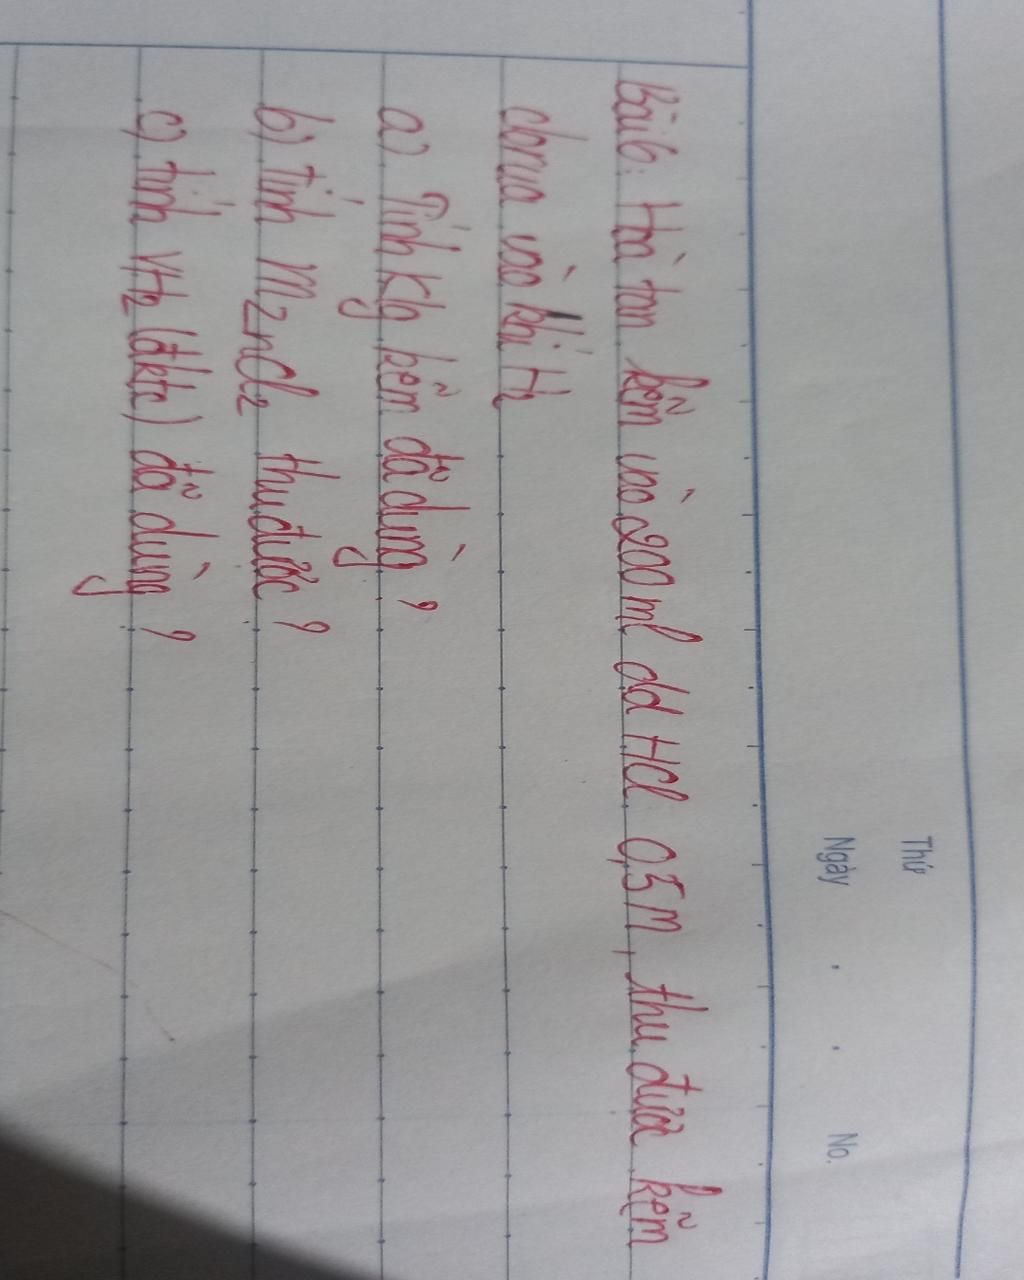 Thứ
Ngày . .
No.
Bài 6: Hoà tan kẽm vào 200 ml dd HCl 0,5 M, thu được kẽm
clorua vào khí H2
a) Tính Klg kẽm đã dùng ?
b) Tính mZnCl2 thu được ?
c) tính VH2 (đktc) đã dùng ?